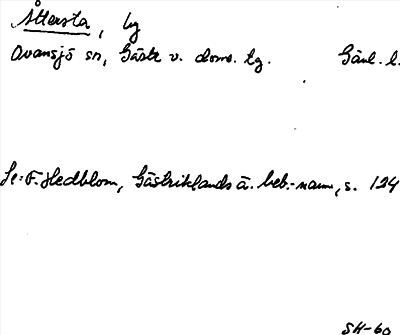 Åttersta, by
Ovansjö sn, Gästr v. doms. tg. Gävl. l.
Se: F. Hedblom, Gästriklands ä. beb.-namn, s. 124
SH-60